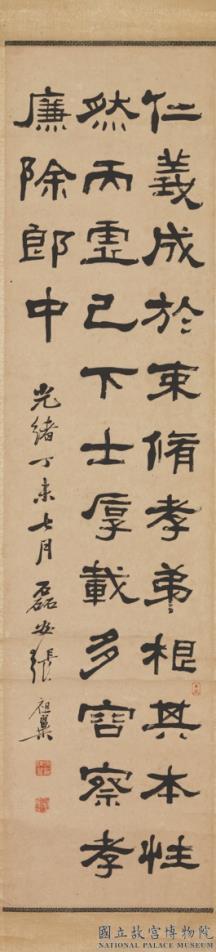 仁義成於束脩孝弟根其本性
然而虛己下士厚載多容察孝
廉除郎中
光緒丁未七月磊盦張祖翼
國立故宮博物院
NATIONAL PALACE MUSEUM